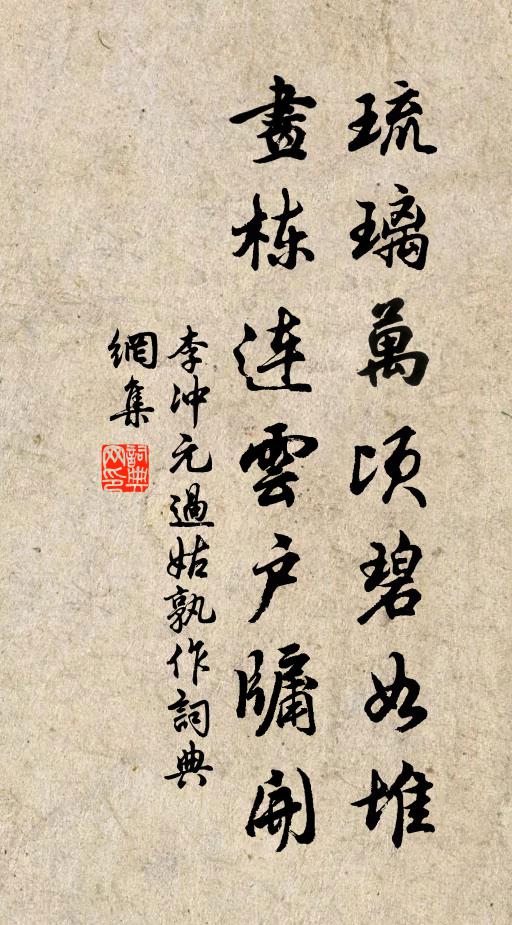 琉璃萬頃碧如堆
畫棟連雲户牖開
李冲元過姑孰作詞典
網集
詞典網印